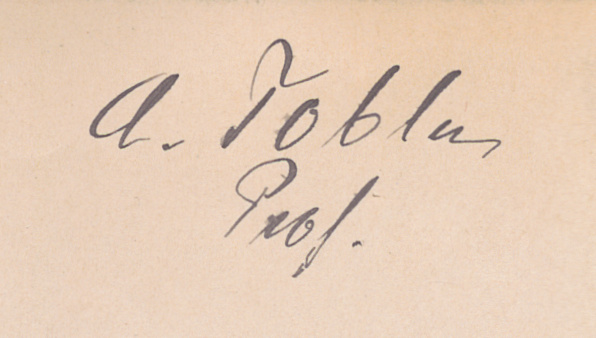 A. Tobler
Prof.